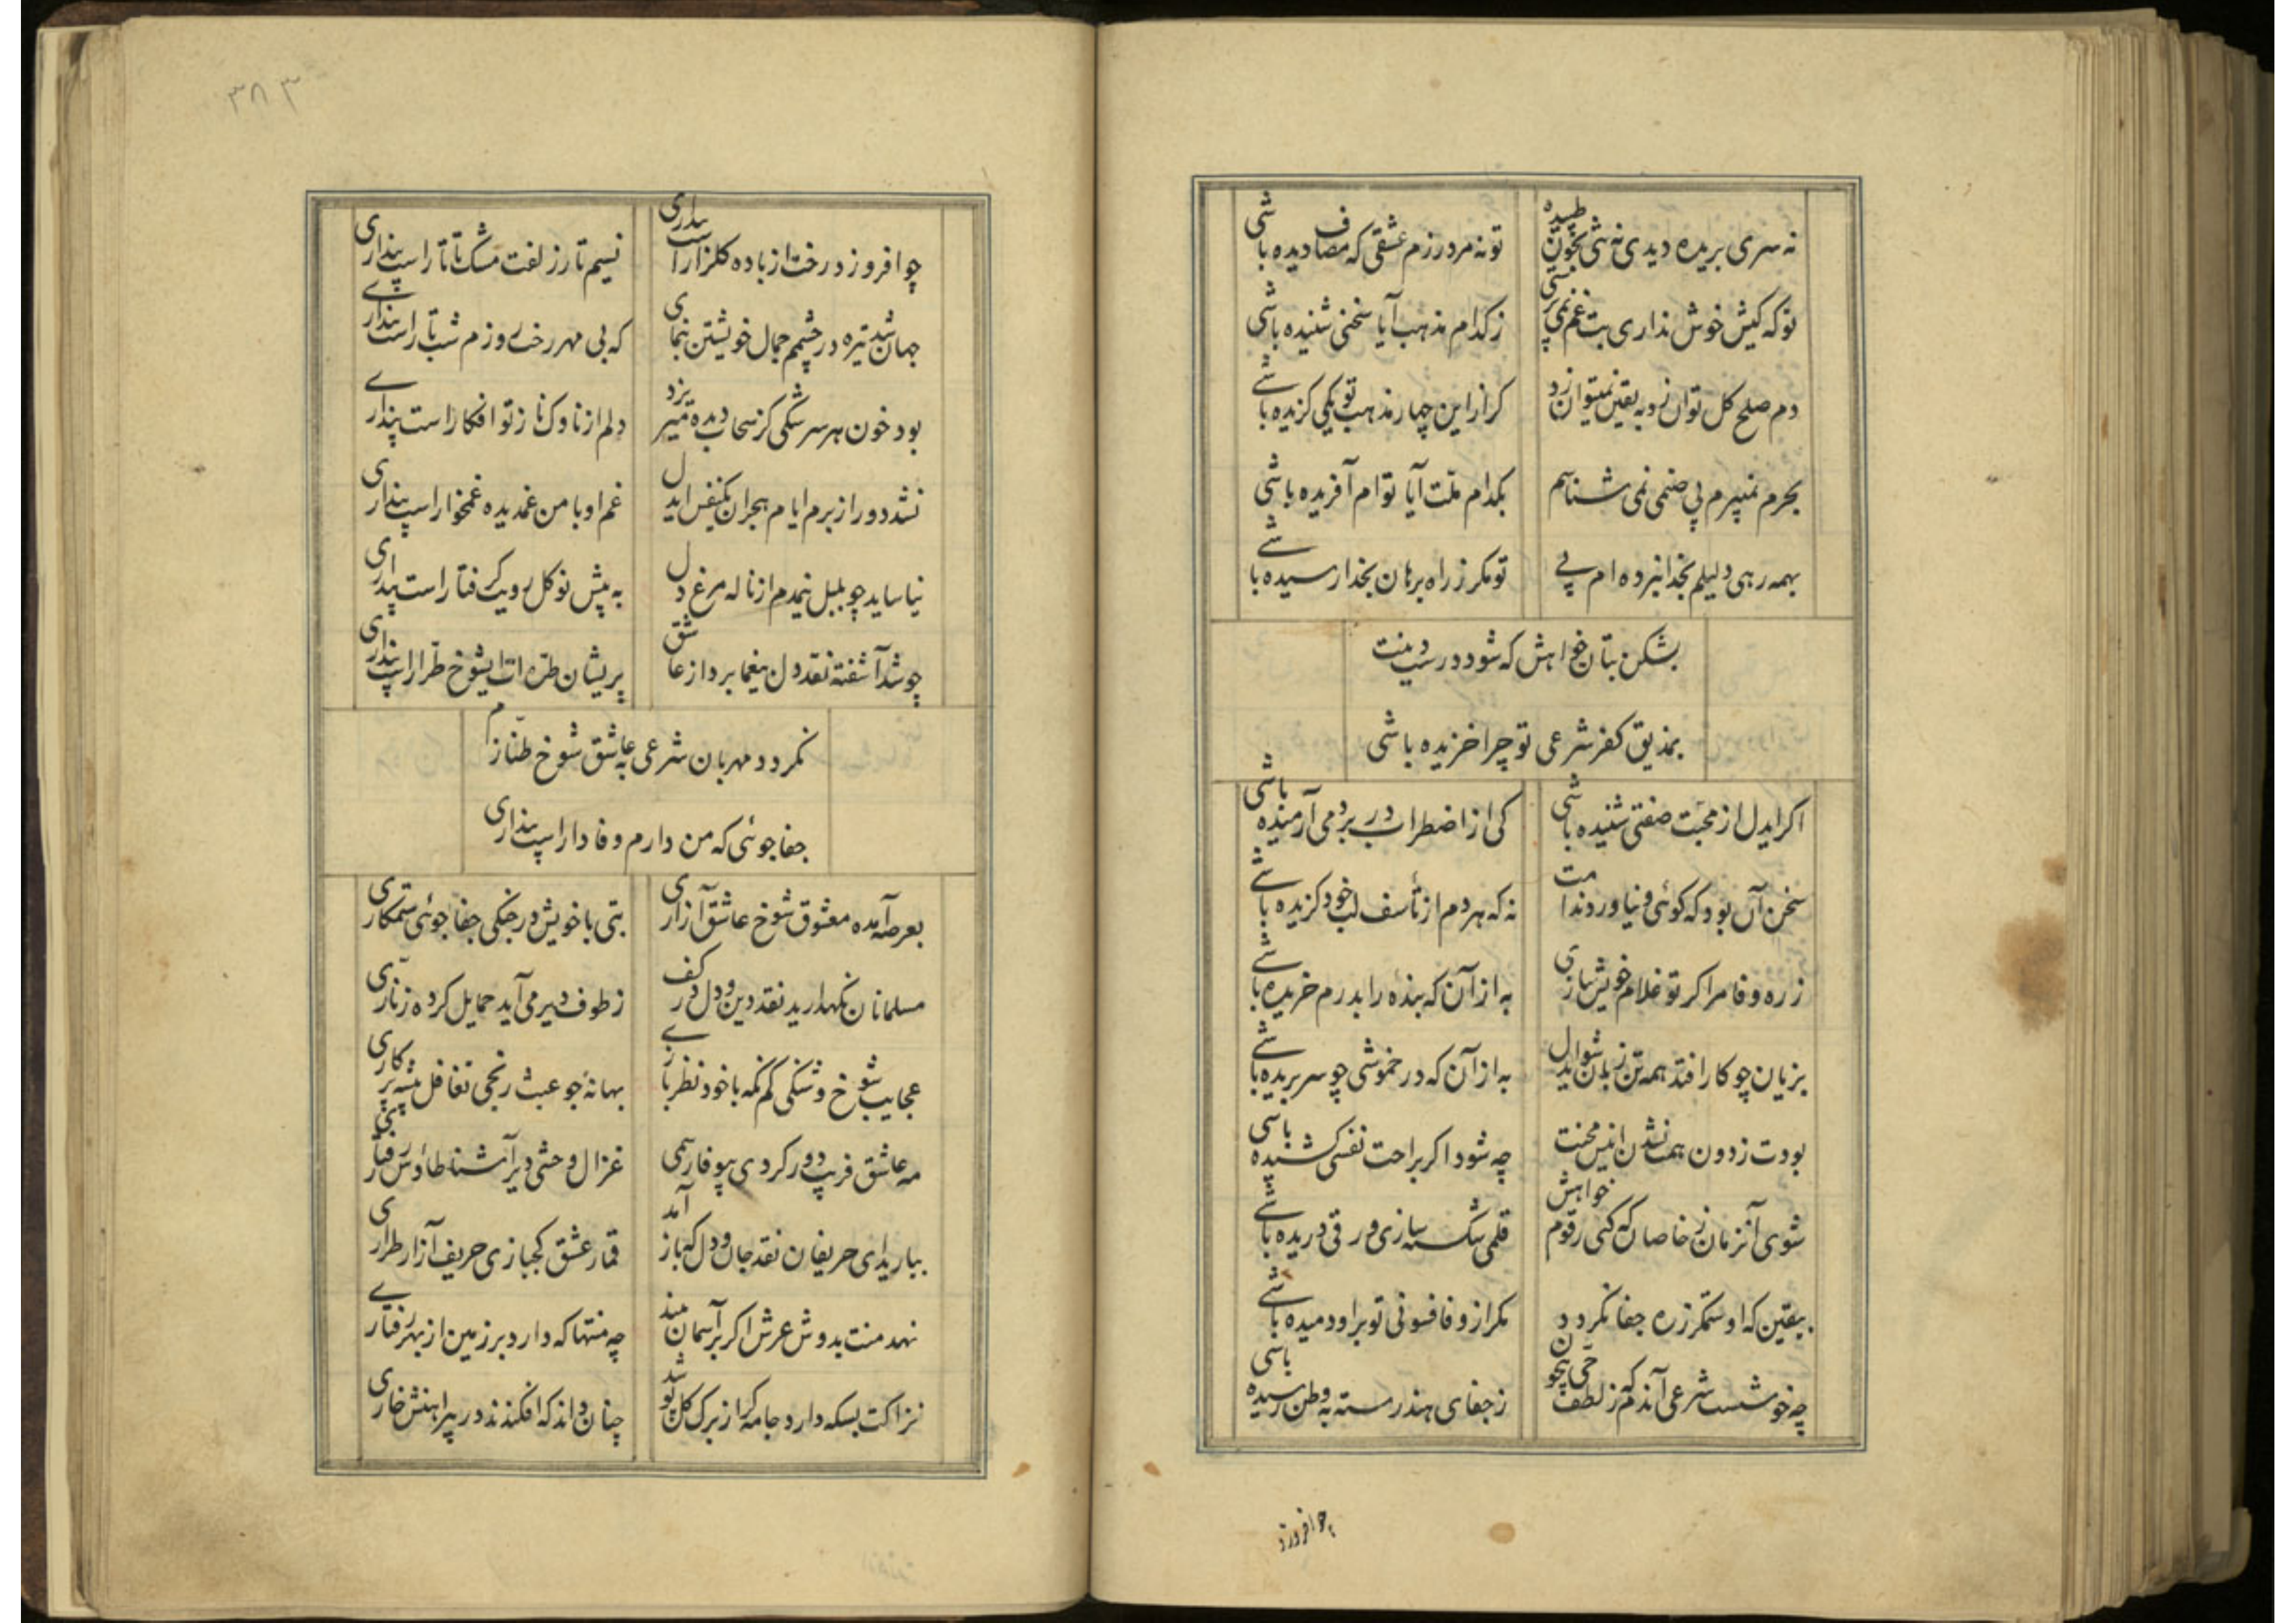 نه سری بریده دیدی نه شی بخون طپیده
تو نه مرد رزم عشقی که مصاف دیده باشی
تو که کیش خوش نداری بت غم نمی پرستی
ز کدام مذهب آیا سخنی شنیده باشی
دم صلح کل توان زد به یقین نمیتوان زد
کر از این چهار مذهب تو یکی کزیده باشی
بحرم نمیپرم پی صنمی نمی شناسم
بکدام ملت آیا تو ام آفریده باشی
بهمه رهی دلیلم بخدا نبرده ام پی
تو مکر ز راه برهان بخدا رسیده باشی
بشکن بتان خواهش که شود درست دینت
بمذیق کفر شرعی تو چرا خزیده باشی
اکر ایدل از محبت صفتی شنیده باشی
کی از اضطراب در بر دمی آرمیده باشی
سخن آن بود که کوئی و نیاورد ندامت
نه که هر دم از تأسف لب خود کزیده باشی
ز ره وفا مرا کر تو غلام خویش سازی
به از آن که بنده را بدرم خریده باشی
بزیان چو کار افتد همه تن زبان شو ایدل
به از آن که در خموشی چو سر بریده باشی
بودت ز دون همت شدن انیس محنت
چه شود اکر براحت نفسی کشیده باشی
شوی آنزمان ز خاصان که کنی رقوم خواهش
قلمی شکسته سازی ورقی دریده باشی
بیقین که او ستمکر ز ره جفا نکردد
مکر از وفا فسونی تو بر او دمیده باشی
چه خوشست شرعی آندم که ز لطف حی بیچون
ز جفای هند رسته به وطن رسیده باشی
چو افروزد
۳۸۳
چو افروزد رخت از باده کلزار است پنداری
نسیم تار زلفت مشک تاتار است پنداری
جهان شد تیره در چشمم جمال خویشتن بنمای
که بی مهر رخت روزم شب تار است پنداری
بود خون هر سرشکی کز سحاب دیده میریزد
دلم از ناوک ناز تو افکار است پنداری
نشد دور از برم ایام هجران یکنفس ایدل
غم او با من غمدیده غمخوار است پنداری
نیاساید چو بلبل نیمدم از ناله مرغ دل
به پیش نو کل رویت کرفتار است پنداری
چو شد آشفته نقد دل بیغما برد از عاشق
پریشان طره ات ایشوخ طرار است پنداری
نکردد مهربان شرعی به عاشق شوخ طنازم
جفاجوئی که من دارم وفادار است پنداری
بعرصه آمده معشوق شوخ عاشق آزاری
بتی با خویش در جنکی جفاجوئی ستمکاری
مسلمانان نکهدارید نقد دین و دل در کف
ز طوف دیر می آید حمایل کرده زناری
عجایب شوخ و شنکی کم نکه با خود نظر بازی
بهانه جو عبث رنجی تغافل پیشه پر کاری
مه عاشق فریب دور کردی بیوفا رسمی
غزال وحشی دیر آشنا طاؤس رفتاری
بیارید ای حریفان نقد جان و دل که باز آمد
قمار عشق کجبازی حریف آزار طراری
نهد منت بدوش عرش اکر بر آسمان بیند
چه منتها که دارد بر زمین از بهر رفتاری
نزاکت بسکه دارد جامه کر از برک کل پوشد
چنان داند که افکندند در پیراهنش خاری